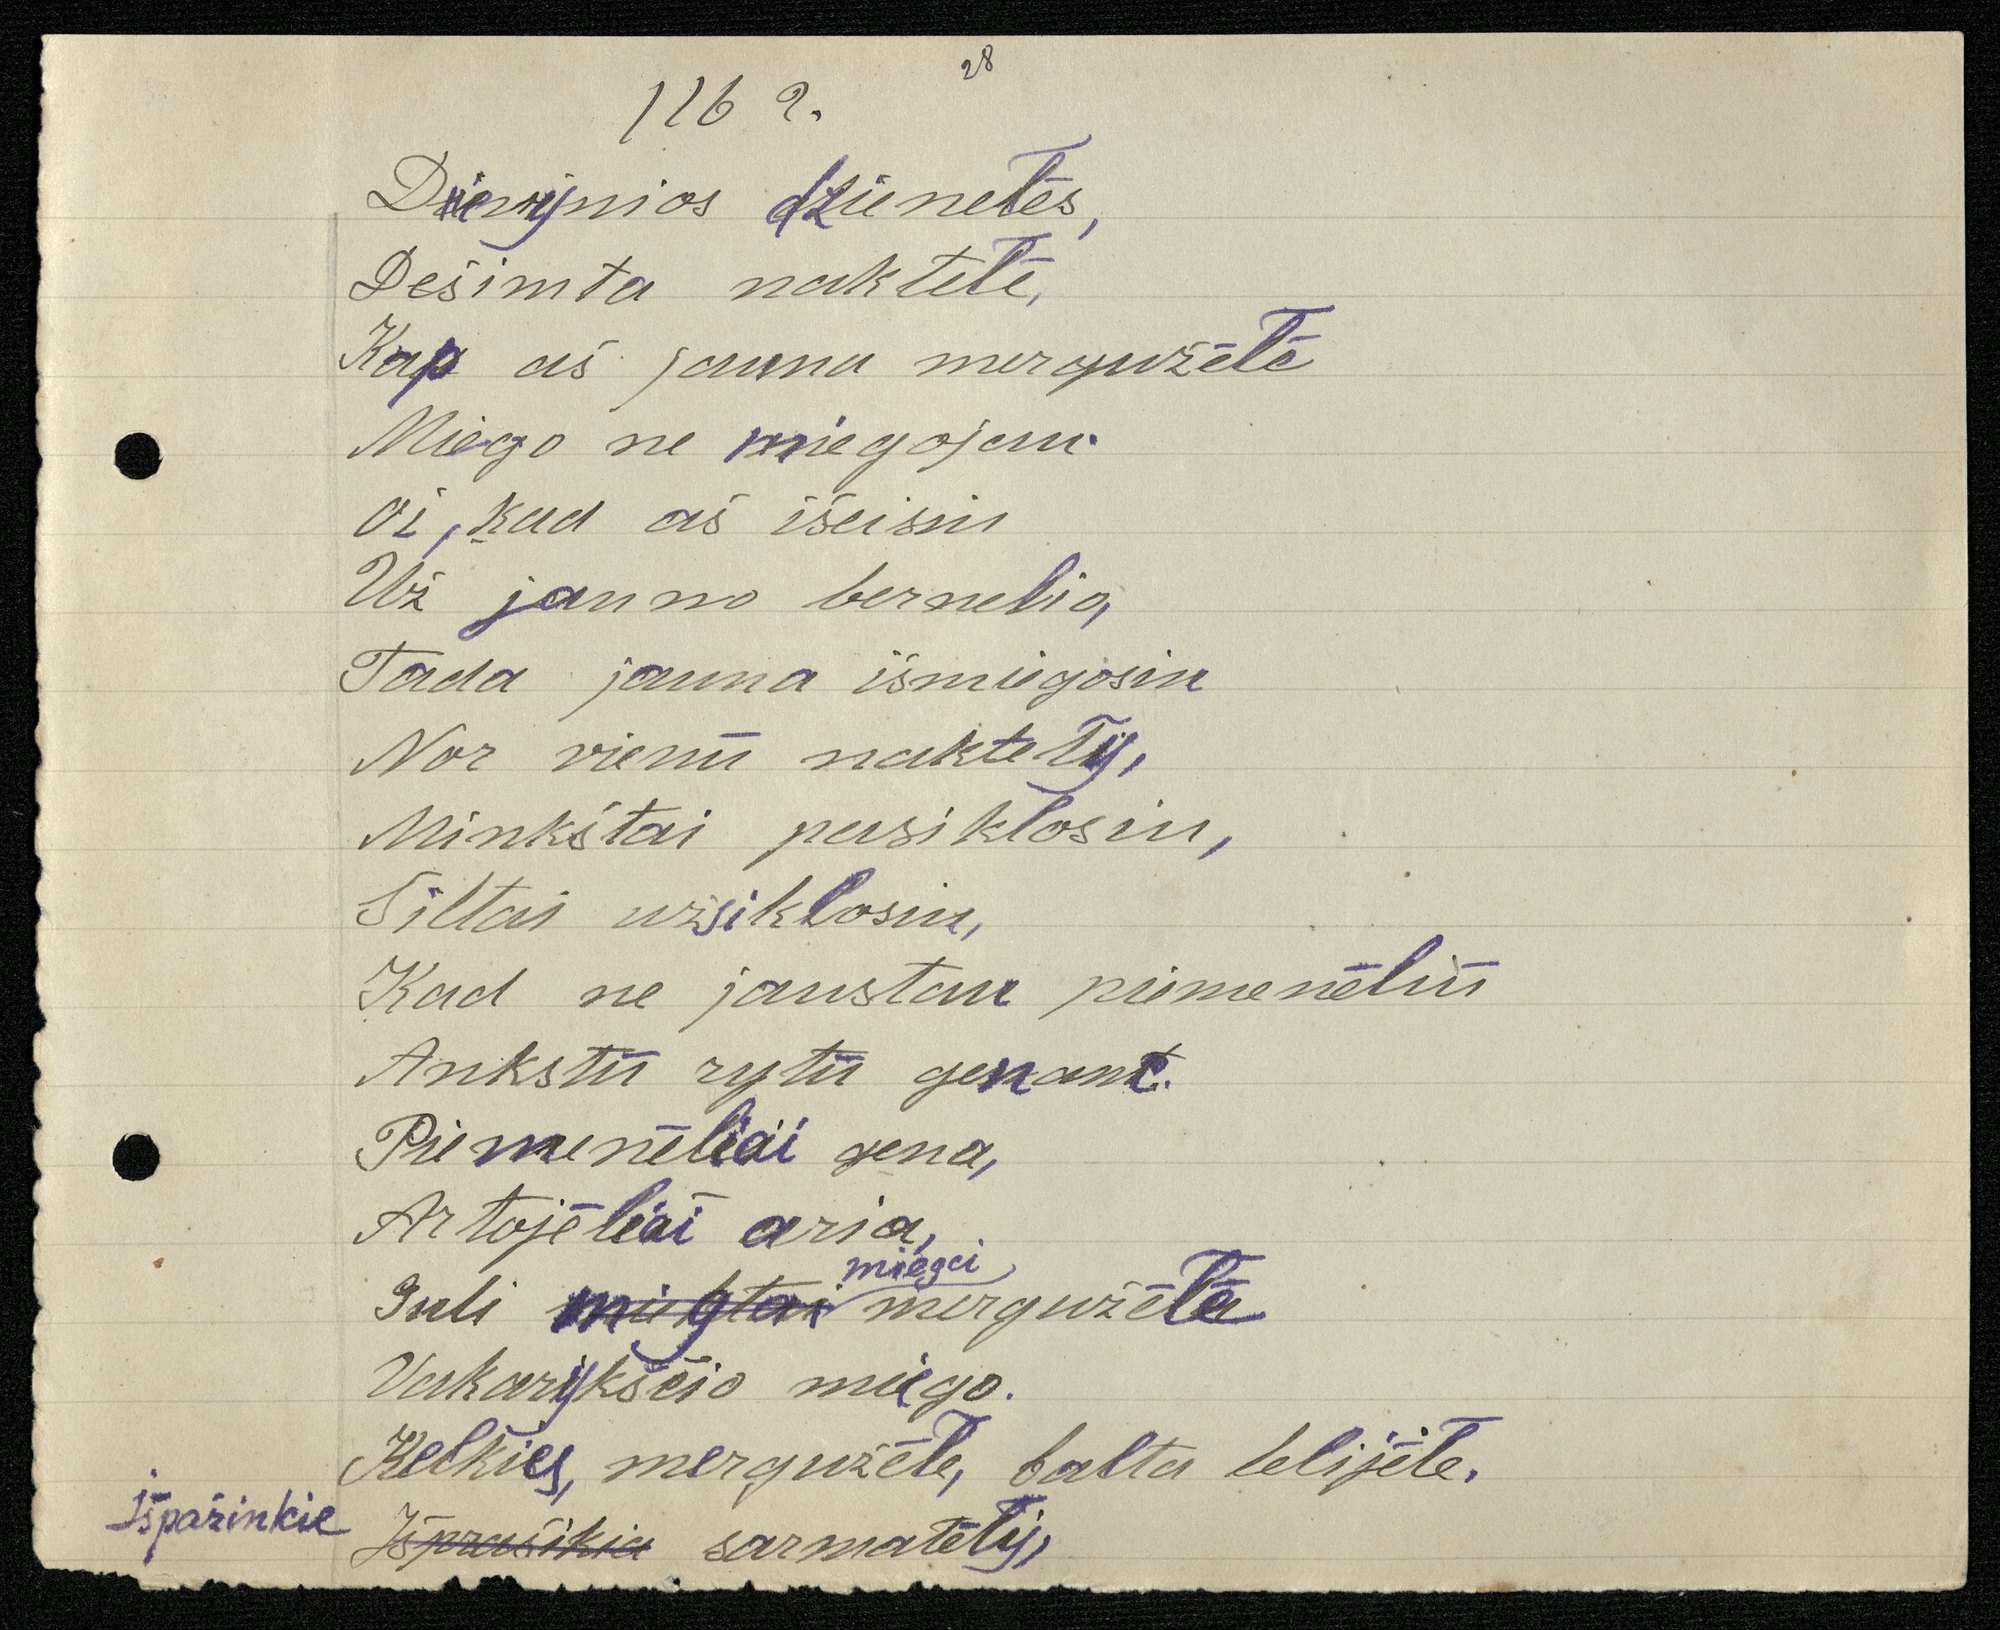 28
1162.
Dievynios dzienełės,
Dešimta naktełė,
Kap aš jauna mergužėłė
Miego ne miegojau.
Oi, kad aš išeisiu
Už jauno bernelio,
Tada jauna išmiegosiu
Nor vienū naktełij,
Minkštai pasikłosiu,
Šiltai užsikłosiu,
Kad ne jaustau piemenėlių
Ankstū rytū genant.
Piemenėliai gena,
Artojėliai aria,
miegci
Guli miegtai mergužėłė
Vakarykščio miego.
Kelkies, mergužėłė, balta lelijėłė.
Išpažinkie Išprašikia sarmatėłij,